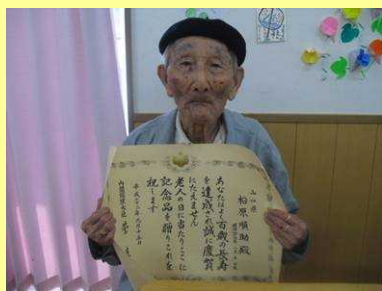 山口県
柏原順助殿
あなたはよく百歳の長寿
を達成され誠に慶賀
にたえません
老人の日に当たりここに
記念品を贈りこれを
祝します
九月十五日
内閣総理大臣